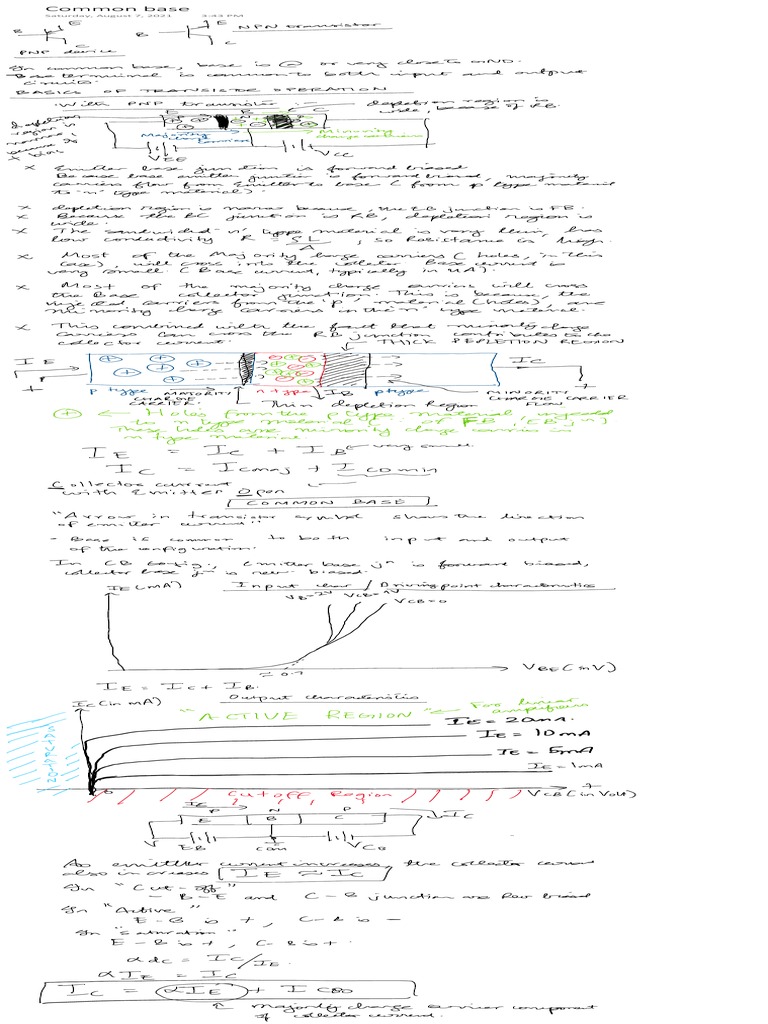 Common base
Saturday, August 7, 2021 3:43 PM
B E C
B E C NPN transistor
PNP device
In common base, base is @ or very close to GND.
Base terminal is common to both input and output
circuits.
BASICS OF TRANSISTOR OPERATION
With PNP transistor :- depletion region is
wide, because of RB.
depletion
region is
narrow
E B C
Majority charge carriers
Minority charge carriers
VEE VCC
x Emitter base junction is forward biased
Because base emitter junction is forward biased, majority
carriers flow from Emitter to base (from p type material
to n type material).
x depletion region is narrow because, the EB junction is FB.
x Because the BC junction is RB, depletion region is
wide.
x The sandwiched 'n' type material is very thin, has
low conductivity R = SL/A, so Resistance is high.
x Most of the Majority charge carriers (holes, in this
case), will cross into the collector Base current is
very small (Base current, typically in uA).
x Most of the majority charge carriers will cross
the Base collector junction. This is because, the
injected carriers from the 'p' material (holes), are
minority charge carriers in the n type material.
x This combined with the fact that minority charge
carriers can cross the RB junction contributes to the
collector current.
THICK DEPLETION REGION
IE IC
+
p type MAJORITY n type IB p type MINORITY
CHARGE CARRIER. Thin depletion Region CHARGE CARRIER
FLOW.
+ ← Holes from the p type material, injected
to n type material ( of FB, EB jn)
These holes are minority charge carrier in
n type material
IE = IC + IB ← very small
IC = ICmaj + ICO min
Collector current
with Emitter Open
COMMON BASE
"Arrow in transistor symbol shows the direction
of emitter current"
- Base is common to both input and output
of the configuration.
In CB config., Emitter base jn is forward biased,
collector base jn is rev. biased.
IE (mA) Input char / Driving point characteristics
VCB=0
≈ 0.7 VBE (mV)
IE = IC + IB.
Output characteristic
IC (in mA)
"ACTIVE REGION" ← For linear
amplifiers
IE = 20mA.
IE = 10mA
IE = 5mA
IE = 1mA
SATURATION
0 Cutoff Region VCB (in Volt)
IE P N P IC
E B C
EB com VCB
As emitter current increases, the collector current
also increases IE ≈ IC
In "Cut-off"
- B-E and C-B junction are Rev biased
In "Active"
E-B is +, C-B is -
In "Saturation"
E-B is +, C-B is +.
α dc = IC/IE
α IE = IC
IC = αIE + ICBO
↑ majority charge carrier component
of collector current.